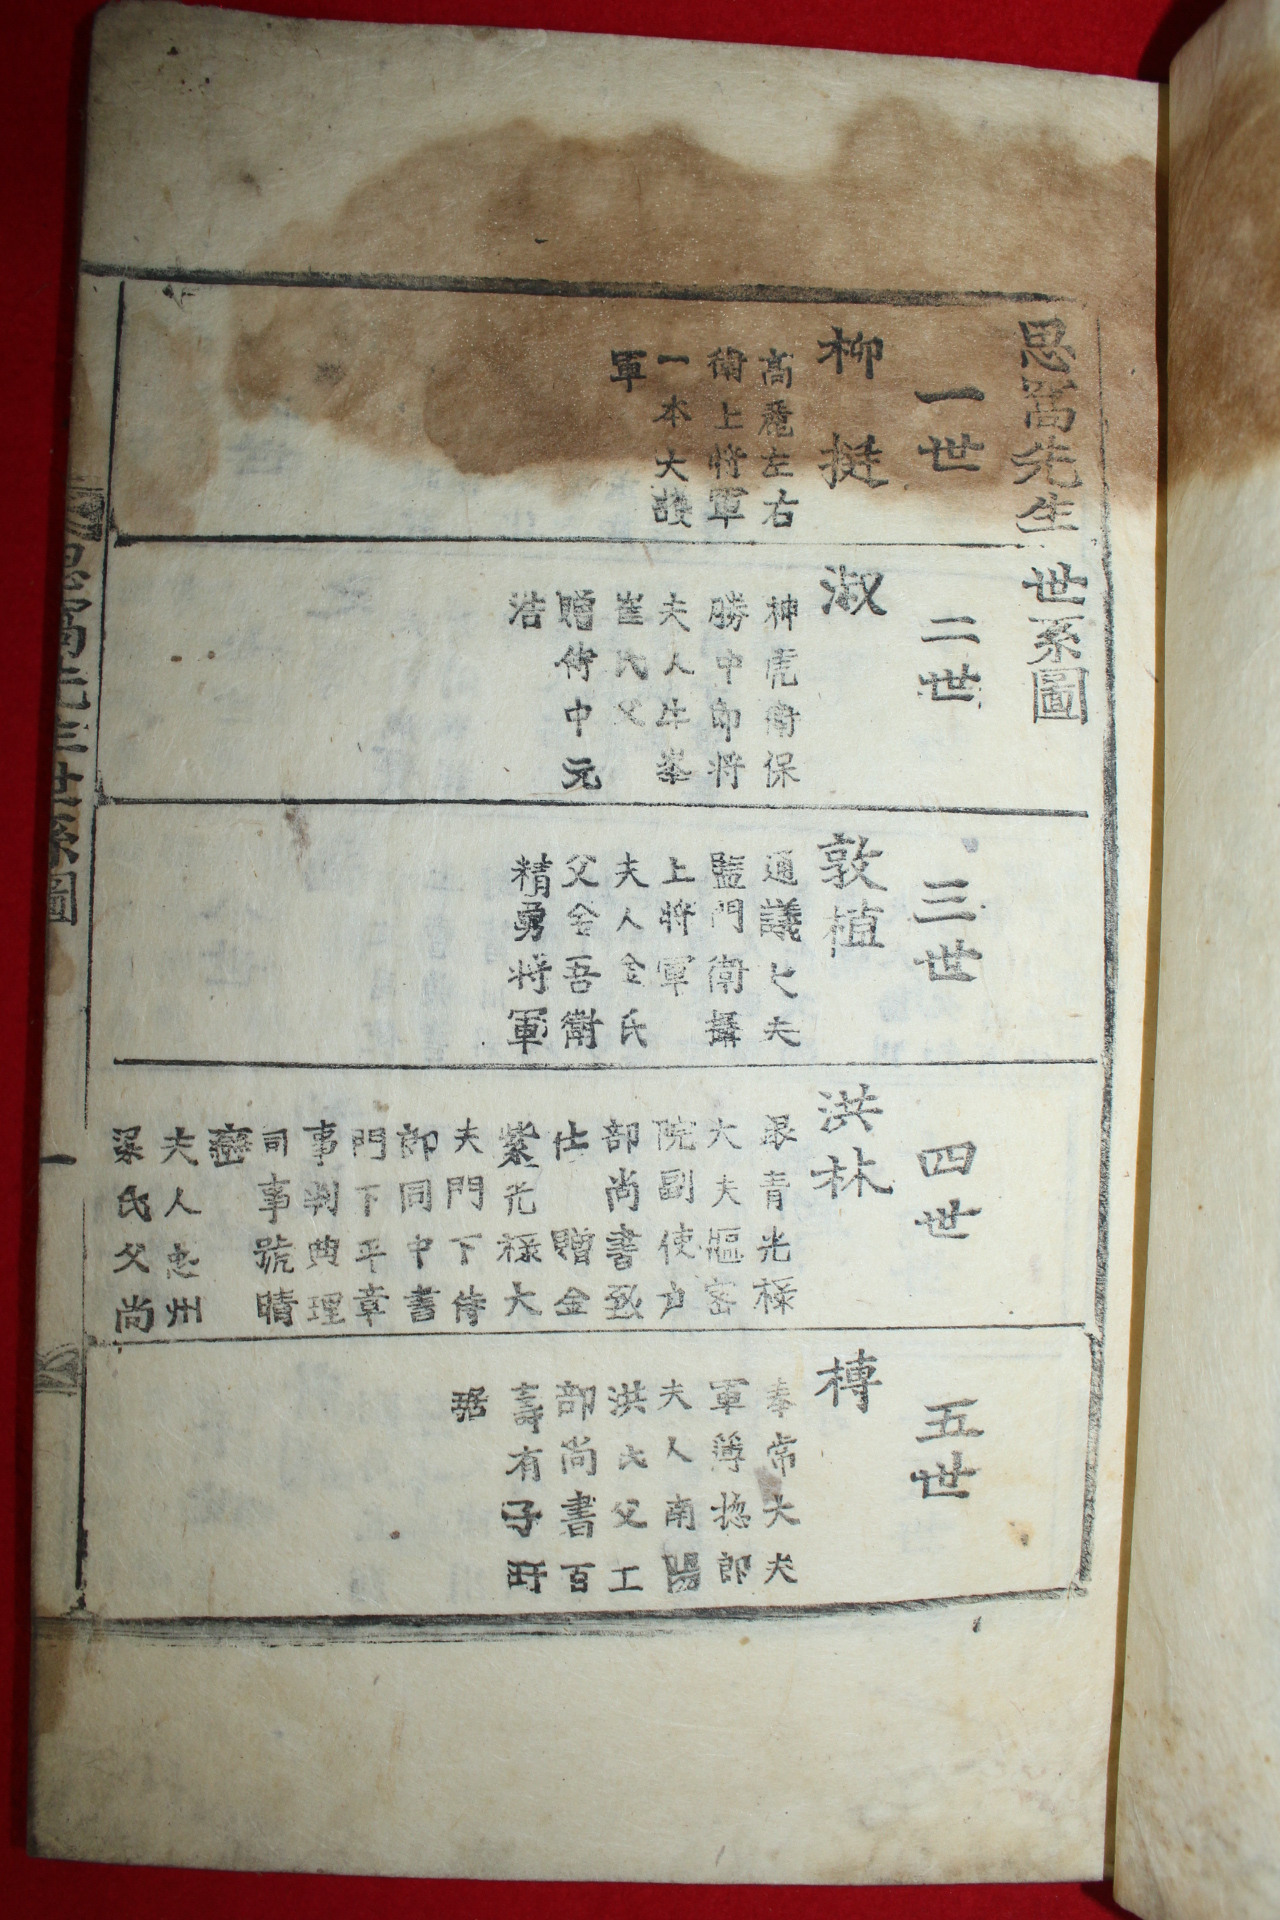 思窩先生世系圖
一世
柳挺
高麗左右
衛上將軍
一本大護
軍
二世
淑
神虎衛保
勝中郎將
夫人牛峯
崔氏父
贈侍中元
浩
三世
敦植
通議大夫
監門衛攝
上將軍
夫人金氏
父金吾衛
精勇將軍
四世
洪林
銀青光祿
大夫樞密
院副使户
部尚書致
仕 贈金
紫光祿大
夫門下侍
郎同中書
門下平章
事判典理
司事號晴
夫人忠州
梁氏父尚
五世
榑
奉常大夫
軍簿摠郎
夫人南陽
洪氏父工
部尚書百
壽有子玗
琚
思窩先生世系圖
一